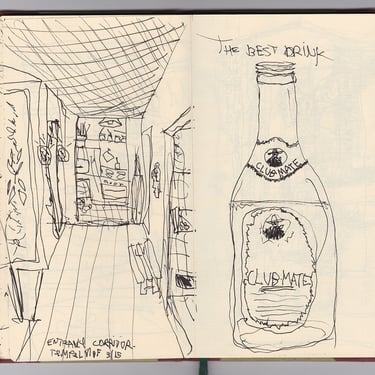 ENTRANCE CORRIDOR
TEMPELHOF 3/15
THE BEST DRINK
CLUB-MATE
CLUB-MATE